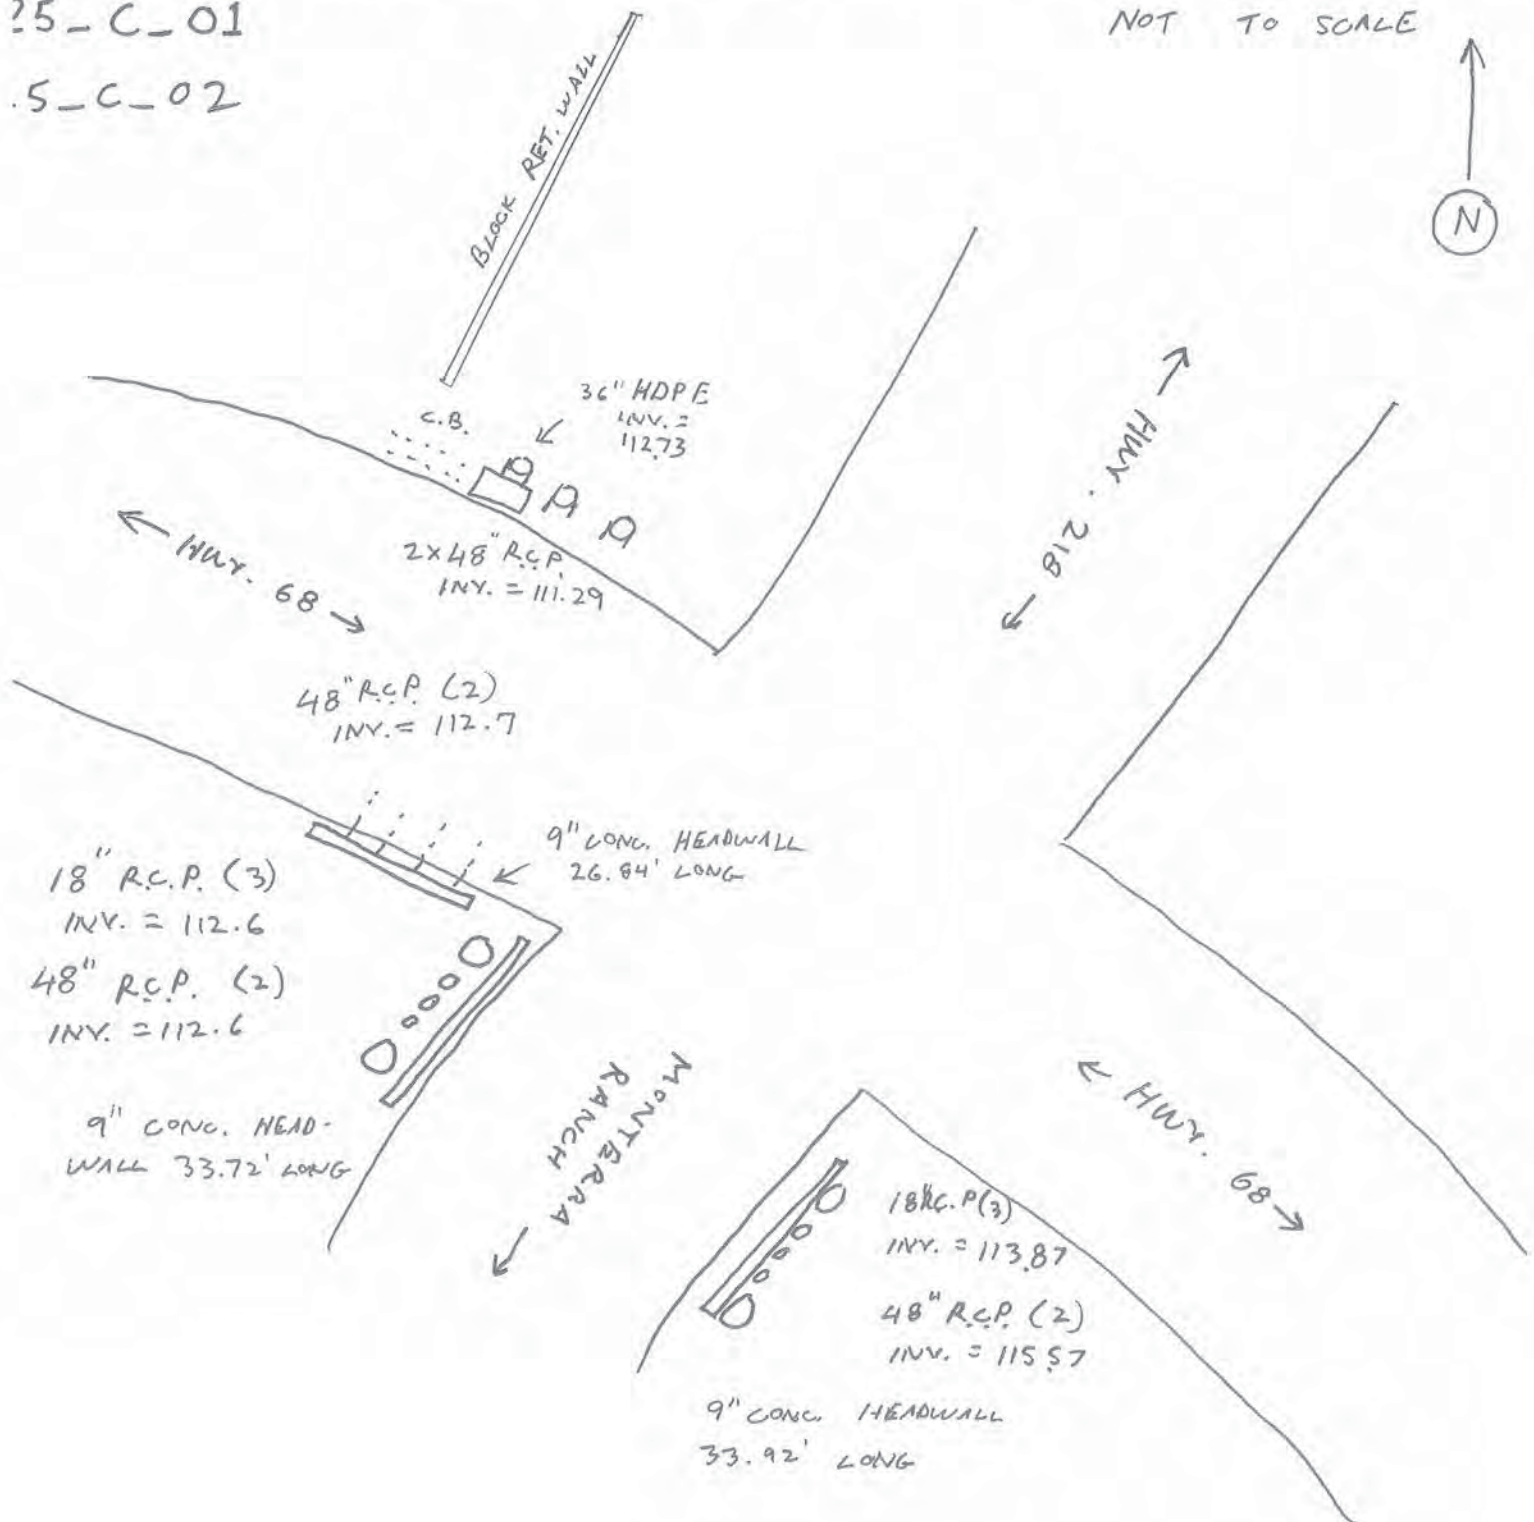 25_C_01
NOT TO SCALE
5_C_02
N
BLOCK RET. WALL
36" HDPE
INV. =
112.73
C.B.
HWY. 218
2x48" R.C.P.
INV. = 111.29
HWY. 68
48" R.C.P. (2)
INV. = 112.7
9" CONC. HEADWALL
26.84' LONG
18" R.C.P. (3)
INV. = 112.6
48" R.C.P. (2)
INV. = 112.6
9" CONC. HEAD-
WALL 33.72' LONG
MONTERRA
RANCH
HWY. 68
18" R.C.P (3)
INV. = 113.87
48" R.C.P. (2)
INV. = 115.57
9" CONC. HEADWALL
33.92' LONG